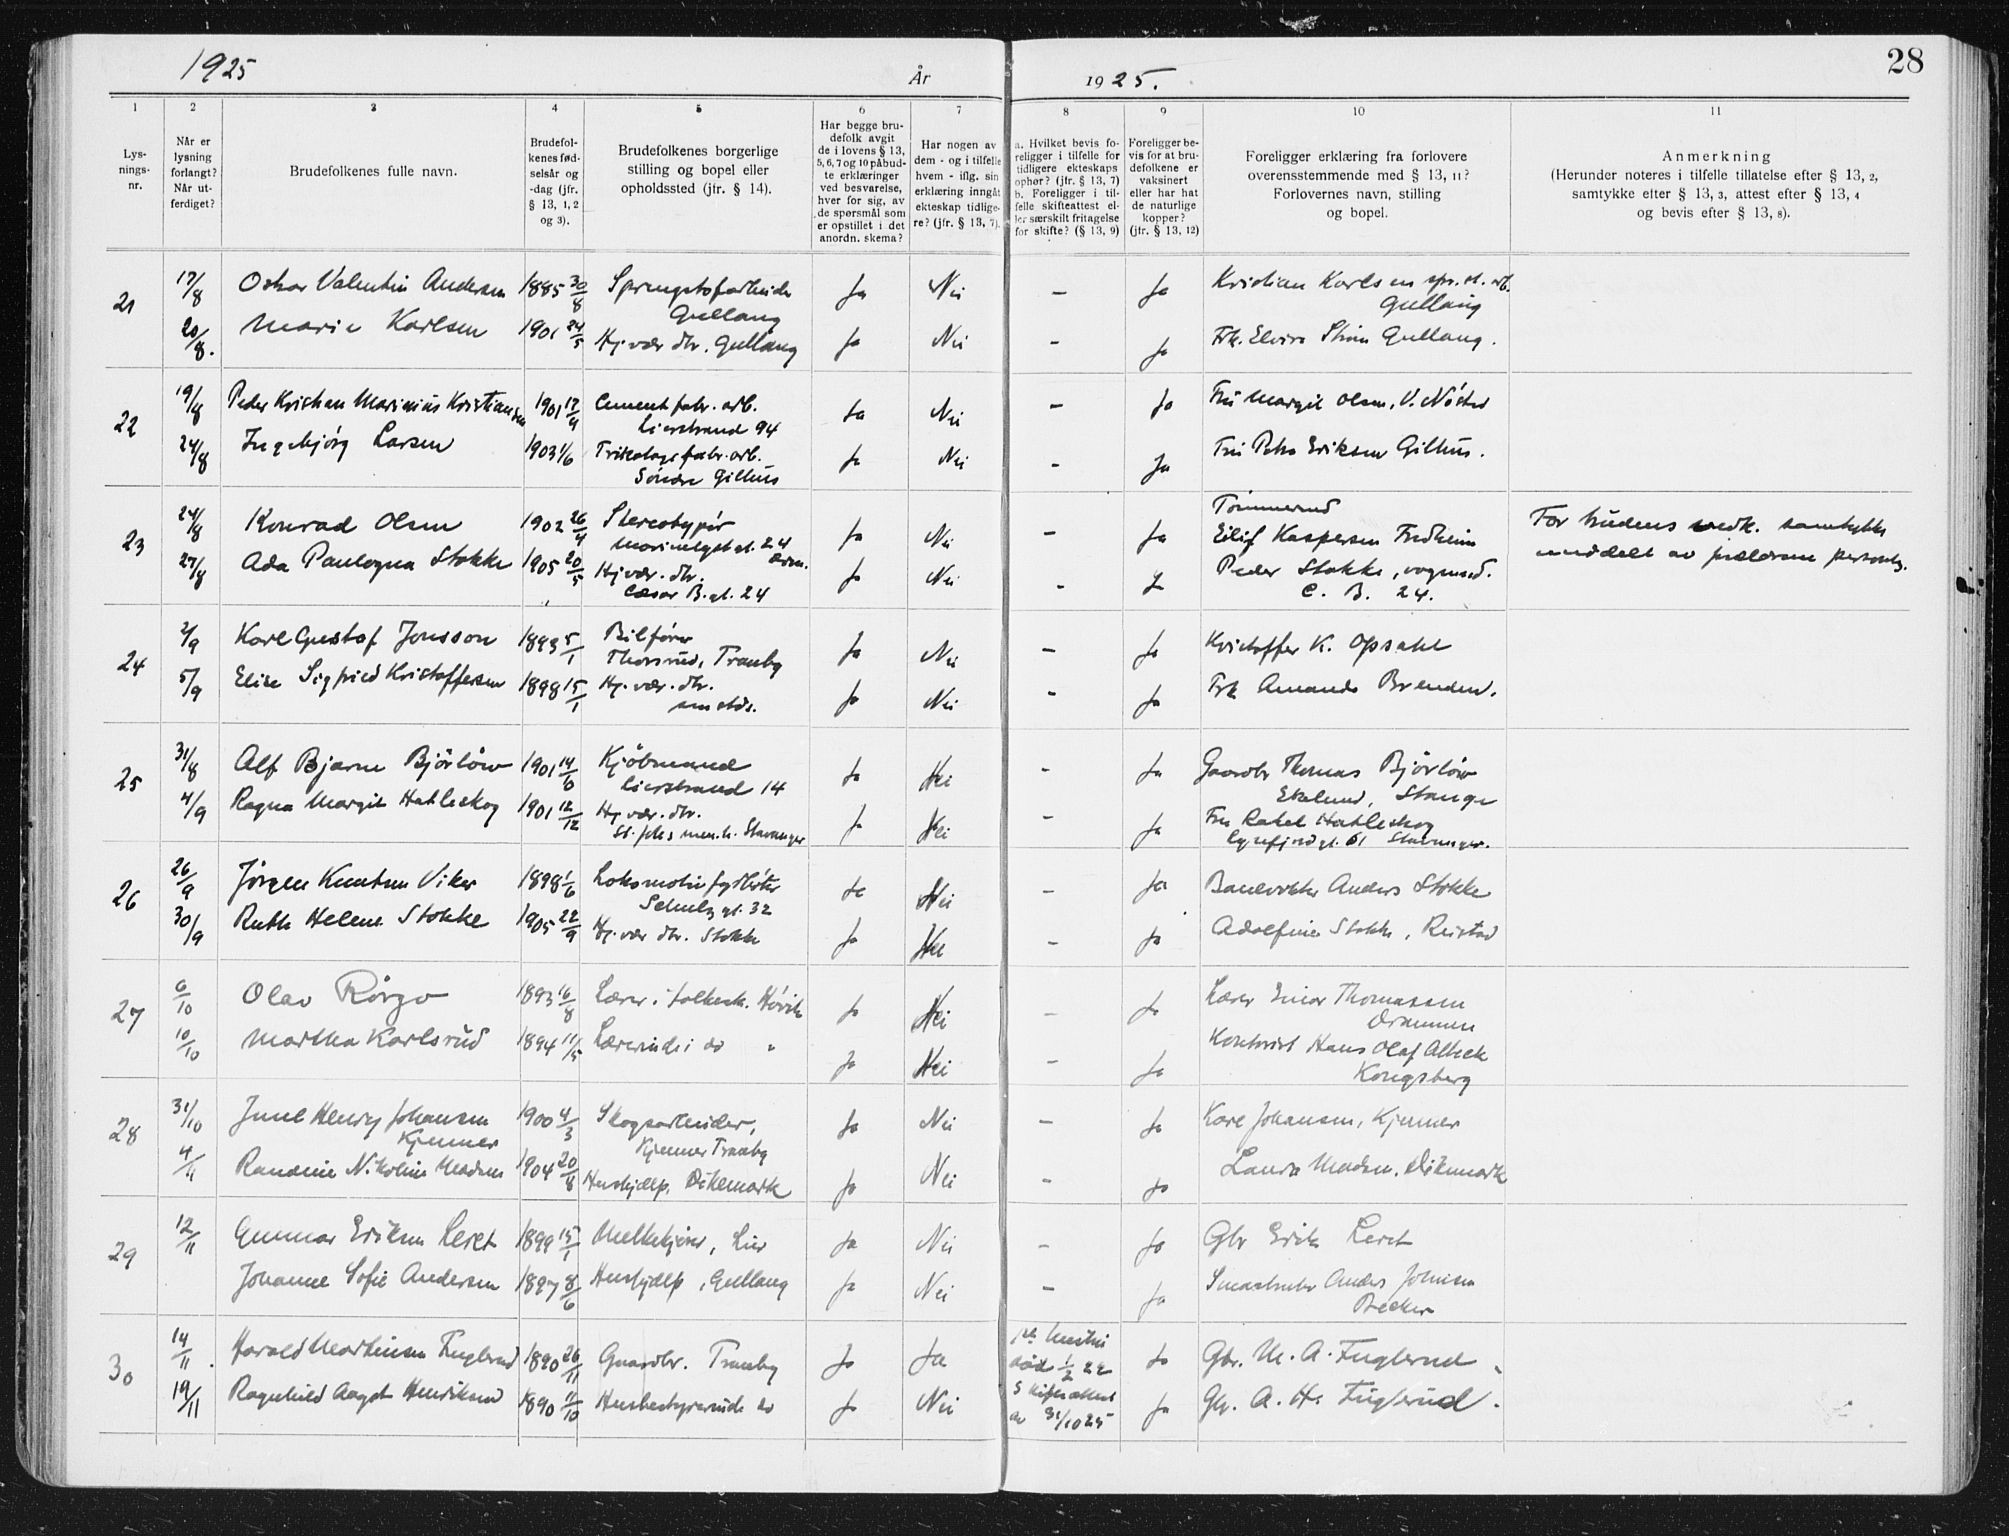 1925
År
1925.
28
1
2
3
4
5
6
7
8
9
10
11
Lys-
nings-
nr.
Når er
lysning
forlangt?
Når ut-
ferdiget?
Brudefolkenes fulle navn.
Brudefol-
kenes fød-
selsår og
-dag (jfr.
§ 13, 1, 2
og 3).
Brudefolkenes borgerlige
stilling og bopel eller
opholdssted (jfr. § 14).
Har begge bru-
defolk avgit
de i lovens § 13,
5, 6, 7 og 10 påbud-
te erklæringer
ved besvarelse,
hver for sig, av
de spørsmål som
er opstillet i det
anordn. skema?
Har nogen av
dem - og i tilfelle
hvem - iflg. sin
erklæring inngåt
ekteskap tidlige-
re? (jfr. § 13, 7).
a. Hvilket bevis fo-
religger i tilfelle for
tidligere ekteskaps
ophør? (jfr. § 13, 7)
b. Foreligger i til-
felle skifteattest el-
ler særskilt fritagelse
for skifte? (§ 13, 9)
Foreligger be-
vis for at bru-
defolkene er
vaksinert
eller har hat
de naturlige
kopper?
(jfr. § 13, 12)
Foreligger erklæring fra forlovere
overensstemmende med § 13, 11?
Forlovernes navn, stilling
og bopel.
Anmerkning
(Herunder noteres i tilfelle tillatelse efter § 13, 2,
samtykke efter § 13, 3, attest efter § 13, 4
og bevis efter § 13, 8).
21 17/8 Oskar Valentin Andersen 1885 30/8 Sprengstofarbeider Gullaug Ja Nei – Ja Kristian Karlsen spr. st. arb. Gullaug
20/8. Marie Karlsen 1901 24/5 Hj. vær. dtr. Gullaug Ja Nei – Ja Frk. Elvira Gullaug.
22 19/8 Peder Kristian Marinius Kristiansen 1901 17/9 Cementfabr. arb. Lierstrand 94 Ja Nei – Ja Fru Margit Olsen, V. Nøsted
24/8 Ingebjørg Larsen 1903 1/6 Trikotagefabr. arb. Søndre Gilhus Ja Nei – Ja Fru Petra Eriksen Gilhus.
23 24/8 Konrad Olsen 1902 26/4 Stereotypør 24 Drm. Ja Nei – Ja Tømmermd Eilif Kaspersen Fredheim For brudens vedk. samtykke
27/8 Ada Paulogna Stokke 1905 20/5 Hj. vær. dtr. Cæsar B. gt. 24 Ja Nei – Ja Peder Stokke, vognmd. C. B. 24. meddelt av forældrene personlig.
24 2/9 Karl Gustaf Jonsson 1893 5/1 Bilfører Thorsrud, Tranby Ja Nei – Ja Kristoffer K. Opsahl
5/9 Elise Sigfried Kristoffersen 1898 15/1 Hj. vær. dtr. smstds. Ja Nei – Ja Frk Amanda Brenden.
25 31/8 Alf Bjarne Bjørløw 1901 14/6 Kjøbmand Lierstrand 14 Ja Nei – Ja Gaardbr Thomas Bjørløw Ekelund, Stange
4/9 Ragna Margit Hatleskog 1901 12/12 Hj. vær. dtr. St. Joh.s men. h. Stavanger Ja Nei – Ja Fru Rakel Hatleskog Lysefjord gt. 61 Stavanger.
26 26/9 Jørgen Knutsen Viker 1898 1/6 Lokomotivfyrbøter Schultz gt. 32 Ja Nei – Ja Banevokter Anders Stokke
30/9 Ruth Helene Stokke 1905 22/9 Hj. vær dtr. Stokke Ja Nei – Ja Adolfine Stokke, Reistad
27 6/10 Olav Rørgo 1893 16/8 Lærer i folkesk. Høvik Ja Nei – Ja Lærer Einar Thomassen Drammen
10/10 Martha Karlsrud 1894 11/5 Lærerinde i do " Ja Nei – Ja Kontorist Hans Olaf Albeck Kongsberg
28 31/10 Juul Henry Johansen Kjenner 1900 4/3 Skogsarbeider, Kjenner Tranby Ja Nei – Ja Karl Johansen, Kjenner
4/11 Randine Nikoline Madsen 1904 20/8 Hushjælp, Dikemark Ja Nei – Ja Laura Madsen, Dikemark
29 12/11 Gunnar Eriksen Leret 1899 15/1 Melkekjører, Lier Ja Nei – Ja Gbr Erik Leret
Johanne Sofie Andersen 1897 8/6 Hushjælp, Gullaug Ja Nei – Ja Smaabruker Anders Johnsen Becker
30 14/11. Harald Martinsen Fuglerud 1890 26/11 Gaardbr. Tranby Ja Ja 1ste hustru død 1/2 22 Ja Gbr. M. A. Fuglerud
19/11 Ragnhild Aagot Henriksen 1890 11/10 Husbestyrerinde do Ja Nei Skifteattest av 31/10 25 Ja Gbr. A. H. Fuglerud.